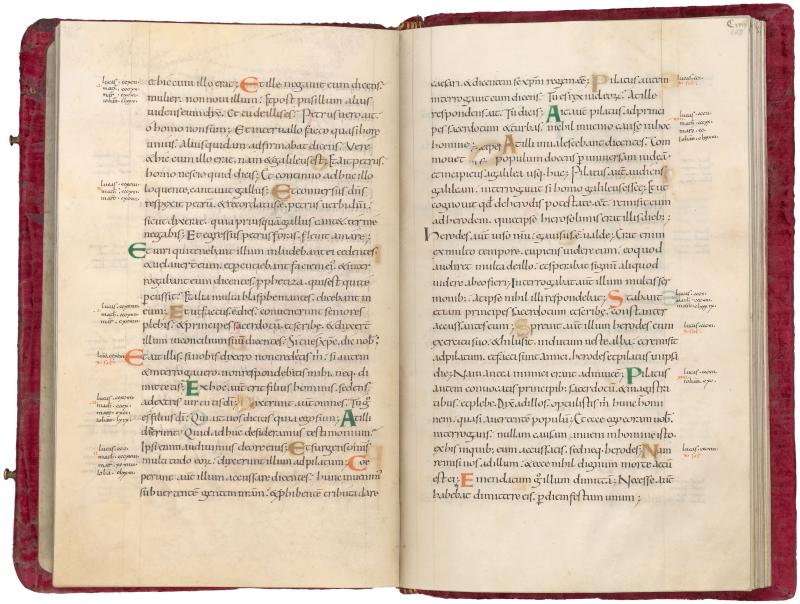 et hic cum illo erat; Et ille negavit eum dicens.
mulier non novi illum; Et post pusillum alius
videns eum dixit. Et tu de illis es; Petrus vero ait.
o homo non sum; Et intervallo facto quasi horę
unius. Alius quidam adfirmabat dicens. Vere
et hic cum illo erat. nam et galileus est; Et ait petrus.
homo nescio quid dicis; Et continuo adhuc illo
loquente, cantavit gallus; Et conversus dñs
respexit petrū. et recordatus ē petrus verbi dñi.
sicut dixerat. quia prius quā gallus cantet ter me
negabis; Et egressus petrus foras. flevit amare;
Et viri qui tenebant illum inludebant ei cedentes.
et velaverunt eum. et percutiebant faciem ei'. et inter
rogabant eum dicentes. prophetiza. quis est qui te
percussit; Et alia multa blasphemantes. dicebant in
eum; Et ut factus ē dies. convenerunt seniores
plebis. et principes sacerdotū. et scribę. et duxert
illum in concilium suū dicentes. Si tu es xpc. dic nobis
Et ait illis. si vobis dixero non credetis m'. si autem
et interrogavero. non respondebitis mihi. neq; di
mittetis; Ex hoc aut erit filius hominis. sedens
ad extris virtutis dī; Dixerunt aut omnes. Tu g
es filius dī; Qui ait. vos dicitis quia ego sum; At illi
dixerunt. Quid adhuc desideramus testimonium.
Ipsi enim audivimus de ore eius; Et surgens omnis
multitudo eorū. duxerunt illum ad pilatum; Coe
perunt aut illum accusare dicentes. hunc invenim'
subvertentē gentem nrām. et phibentē tributa dare
cęsari. et dicentem se xpm regem eē; Pilatus autem
interrogavit eum dicens. Tu es rex iudeorū. At ille
respondens ait. Tu dicis; Ait aut pilatus ad princi
pes sacerdotum et turbas. nihil invenio causę in hoc
homine; At illi invalescebant dicentes. Com
movet populum docens p universam iudeā.
et incipiens a galilea usq; huc; Pilatus aut audiens
galileam. interrogavit si homo galileus esset; Et ut
cognovit qd de herodis potestate eēt. remisit eum
ad herodem. qui et ipse hierosolimis erat illis dieb;
herodes aut viso ihu. gavisus ē valde; Erat enim
ex multo tempore. cupiens videre eum. eo quod
audiret multa de illo. et sperabat signū aliquod
videre ab eo fieri; Interrogabat aut illum multis ser
monib; At ipse nihil illi respondebat; Stabant
etiam principes sacerdotum et scribę. constanter
accusantes eum; Sprevit aut illum herodes cum
exercitu suo. et inlusit. indutum veste alba. et remisit
ad pilatum. et facti sunt amici. herodes et pilatus in ipsa
die; Nam antea inimici erant ad invicē; Pilatus
autem convocatis principib; sacerdotū. et magistra
tibus. et plebe. Dix ad illos. optulistis m' hunc homi
nem. quasi avertentē populū; Et ecce ego coram vob.
interrogans. nullam causam invenio in homine isto.
ex his in quib; eum accusatis. sed neq; herodes; Nam
remisi vos ad illum. et ecce nihil dignum morte actū
est ei; Emendatum g illum dimittā; Necesse aut
habebat dimittere eis. p diem festum unum;